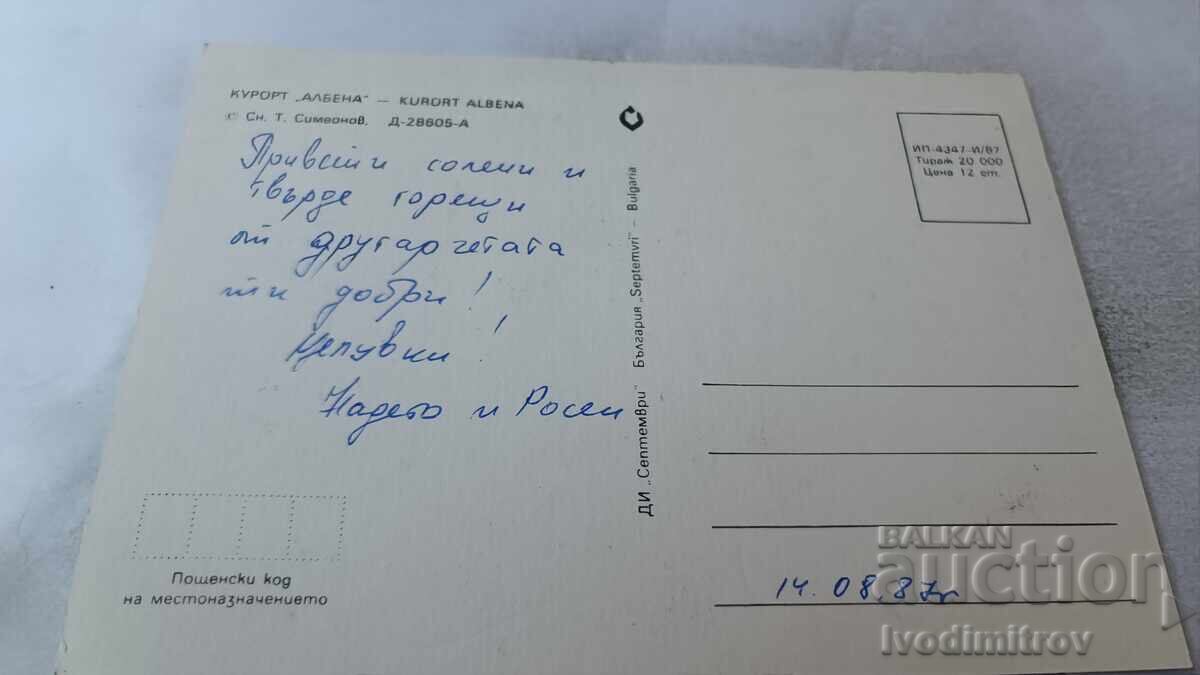 КУРОРТ „АЛБЕНА" — KURORT ALBENA
© Сн. Т. Симеонов, Д-28605-А
Привети солени и
твърде горещи
от другарчетата
ти добри!
Целувки!
Надето и Росен
Пощенски код
на местоназначението
ДИ „Септември" България „Septemvri" — Bulgaria
ИП-4347-И/87
Тираж 20 000
Цена 12 ст.
14.08.87г
BALKAN
auction
Ivodimitrov